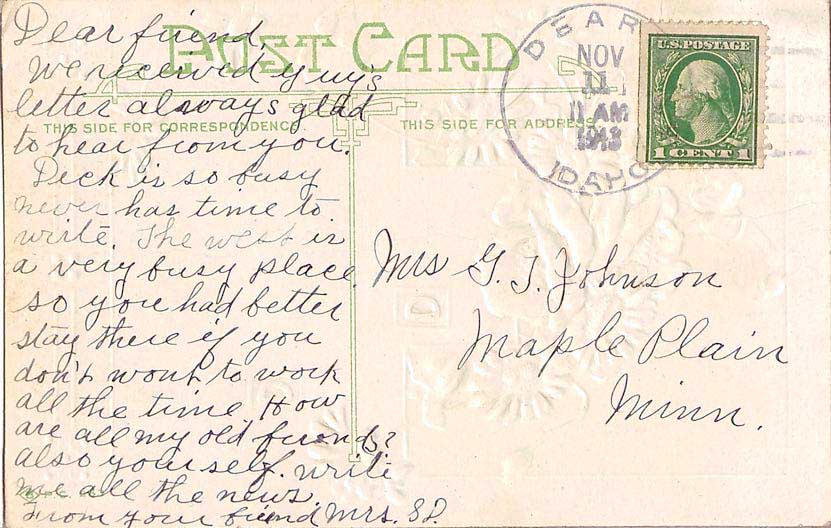 Dear friend,
POST CARD
We received Guy's
letter always glad
THIS SIDE FOR CORRESPONDENCE
to hear from you.
Deck is so busy
never has time to
write. The west is
a very busy place
so you had better
stay there if you
don't wont to work
all the time How
are all my old friends?
also yourself. write
me all the news.
From your friend Mrs. SD.
THIS SIDE FOR ADDRESS
DEAR
NOV
11
11 AM
1913
IDAHO
U.S. POSTAGE
1 CENT 1
Mrs G. T. Johnson
Maple Plain
Minn.